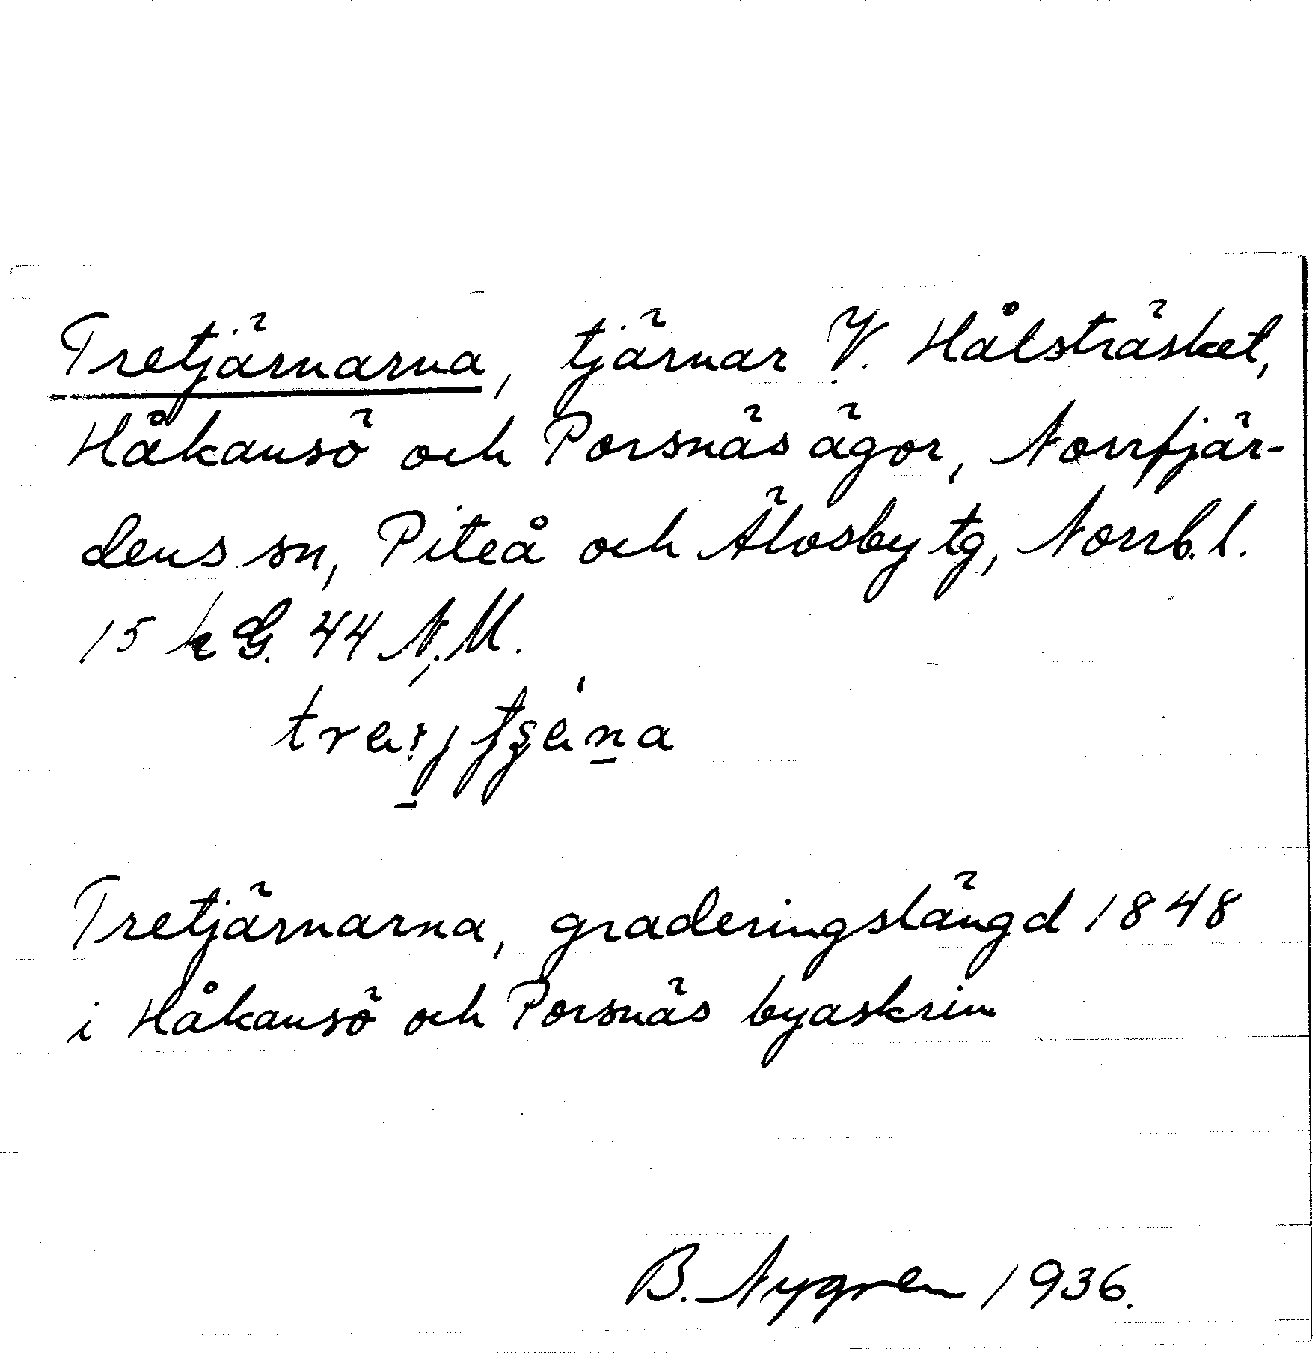 Tretjärnarna, tjärnar V. Hålsträsket,
Håkansö och Porsnäs ägor, Norrfjär-
dens sn, Piteå och Älvsby tg, Norrb. l.
15 k G. 44 N.M.
Tretjärnarna, graderingslängd 1848
i Håkansö och Porsnäs byaskrin
B. Nygren 1936.